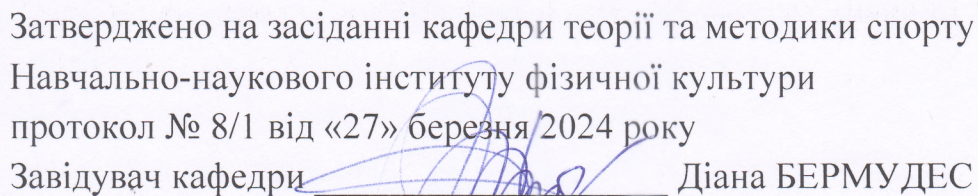 Затверджено на засіданні кафедри теорії та методики спорту
Навчально-наукового інституту фізичної культури
протокол № 8/1 від «27» березня 2024 року
Завідувач кафедри____________________ Діана БЕРМУДЕС